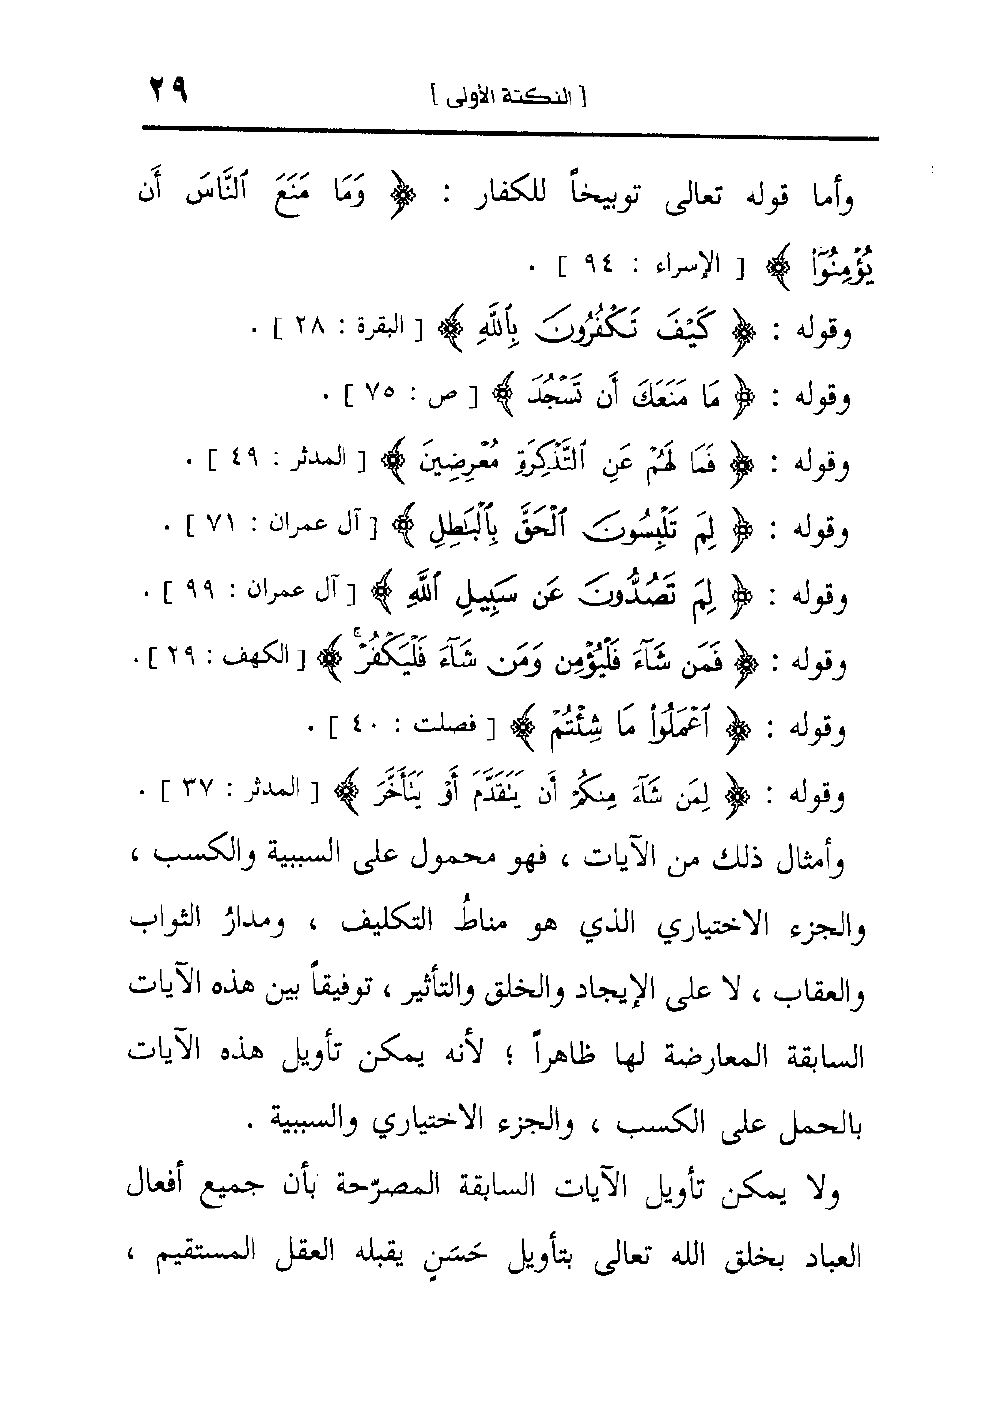 [ النكتة الأولى ] ٢٩
وأما قوله تعالى توبيخاً للكفار : ﴿ وَمَا مَنَعَ ٱلنَّاسَ أَن
يُؤْمِنُوٓا۟ ﴾ [ الإسراء : ٩٤ ] .
وقوله : ﴿ كَيْفَ تَكْفُرُونَ بِٱللَّهِ ﴾ [ البقرة : ٢٨ ] .
وقوله : ﴿ مَا مَنَعَكَ أَن تَسْجُدَ ﴾ [ ص : ٧٥ ] .
وقوله : ﴿ فَمَا لَهُمْ عَنِ ٱلتَّذْكِرَةِ مُعْرِضِينَ ﴾ [ المدثر : ٤٩ ] .
وقوله : ﴿ لِمَ تَلْبِسُونَ ٱلْحَقَّ بِٱلْبَٰطِلِ ﴾ [ آل عمران : ٧١ ] .
وقوله : ﴿ لِمَ تَصُدُّونَ عَن سَبِيلِ ٱللَّهِ ﴾ [ آل عمران : ٩٩ ] .
وقوله : ﴿ فَمَن شَآءَ فَلْيُؤْمِن وَمَن شَآءَ فَلْيَكْفُرْ ۚ ﴾ [ الكهف : ٢٩ ] .
وقوله : ﴿ ٱعْمَلُوا۟ مَا شِئْتُمْ ﴾ [ فصلت : ٤٠ ] .
وقوله : ﴿ لِمَن شَآءَ مِنكُمْ أَن يَتَقَدَّمَ أَوْ يَتَأَخَّرَ ﴾ [ المدثر : ٣٧ ] .
وأمثال ذلك من الآيات ، فهو محمول على السببية والكسب ،
والجزء الاختياري الذي هو مناطُ التكليف ، ومدارُ الثواب
والعقاب ، لا على الإيجاد والخلق والتأثير ، توفيقاً بين هذه الآيات
السابقة المعارضة لها ظاهراً ؛ لأنه يمكن تأويل هذه الآيات
بالحمل على الكسب ، والجزء الاختياري والسببية .
ولا يمكن تأويل الآيات السابقة المصرّحة بأن جميع أفعال
العباد بخلق الله تعالى بتأويل حَسَنٍ يقبله العقل المستقيم ،